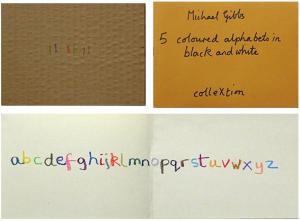 Michael Gibbs
5 coloured alphabets in
black and white
colleXtion
abcdefghijklmnopqrstuvwxyz